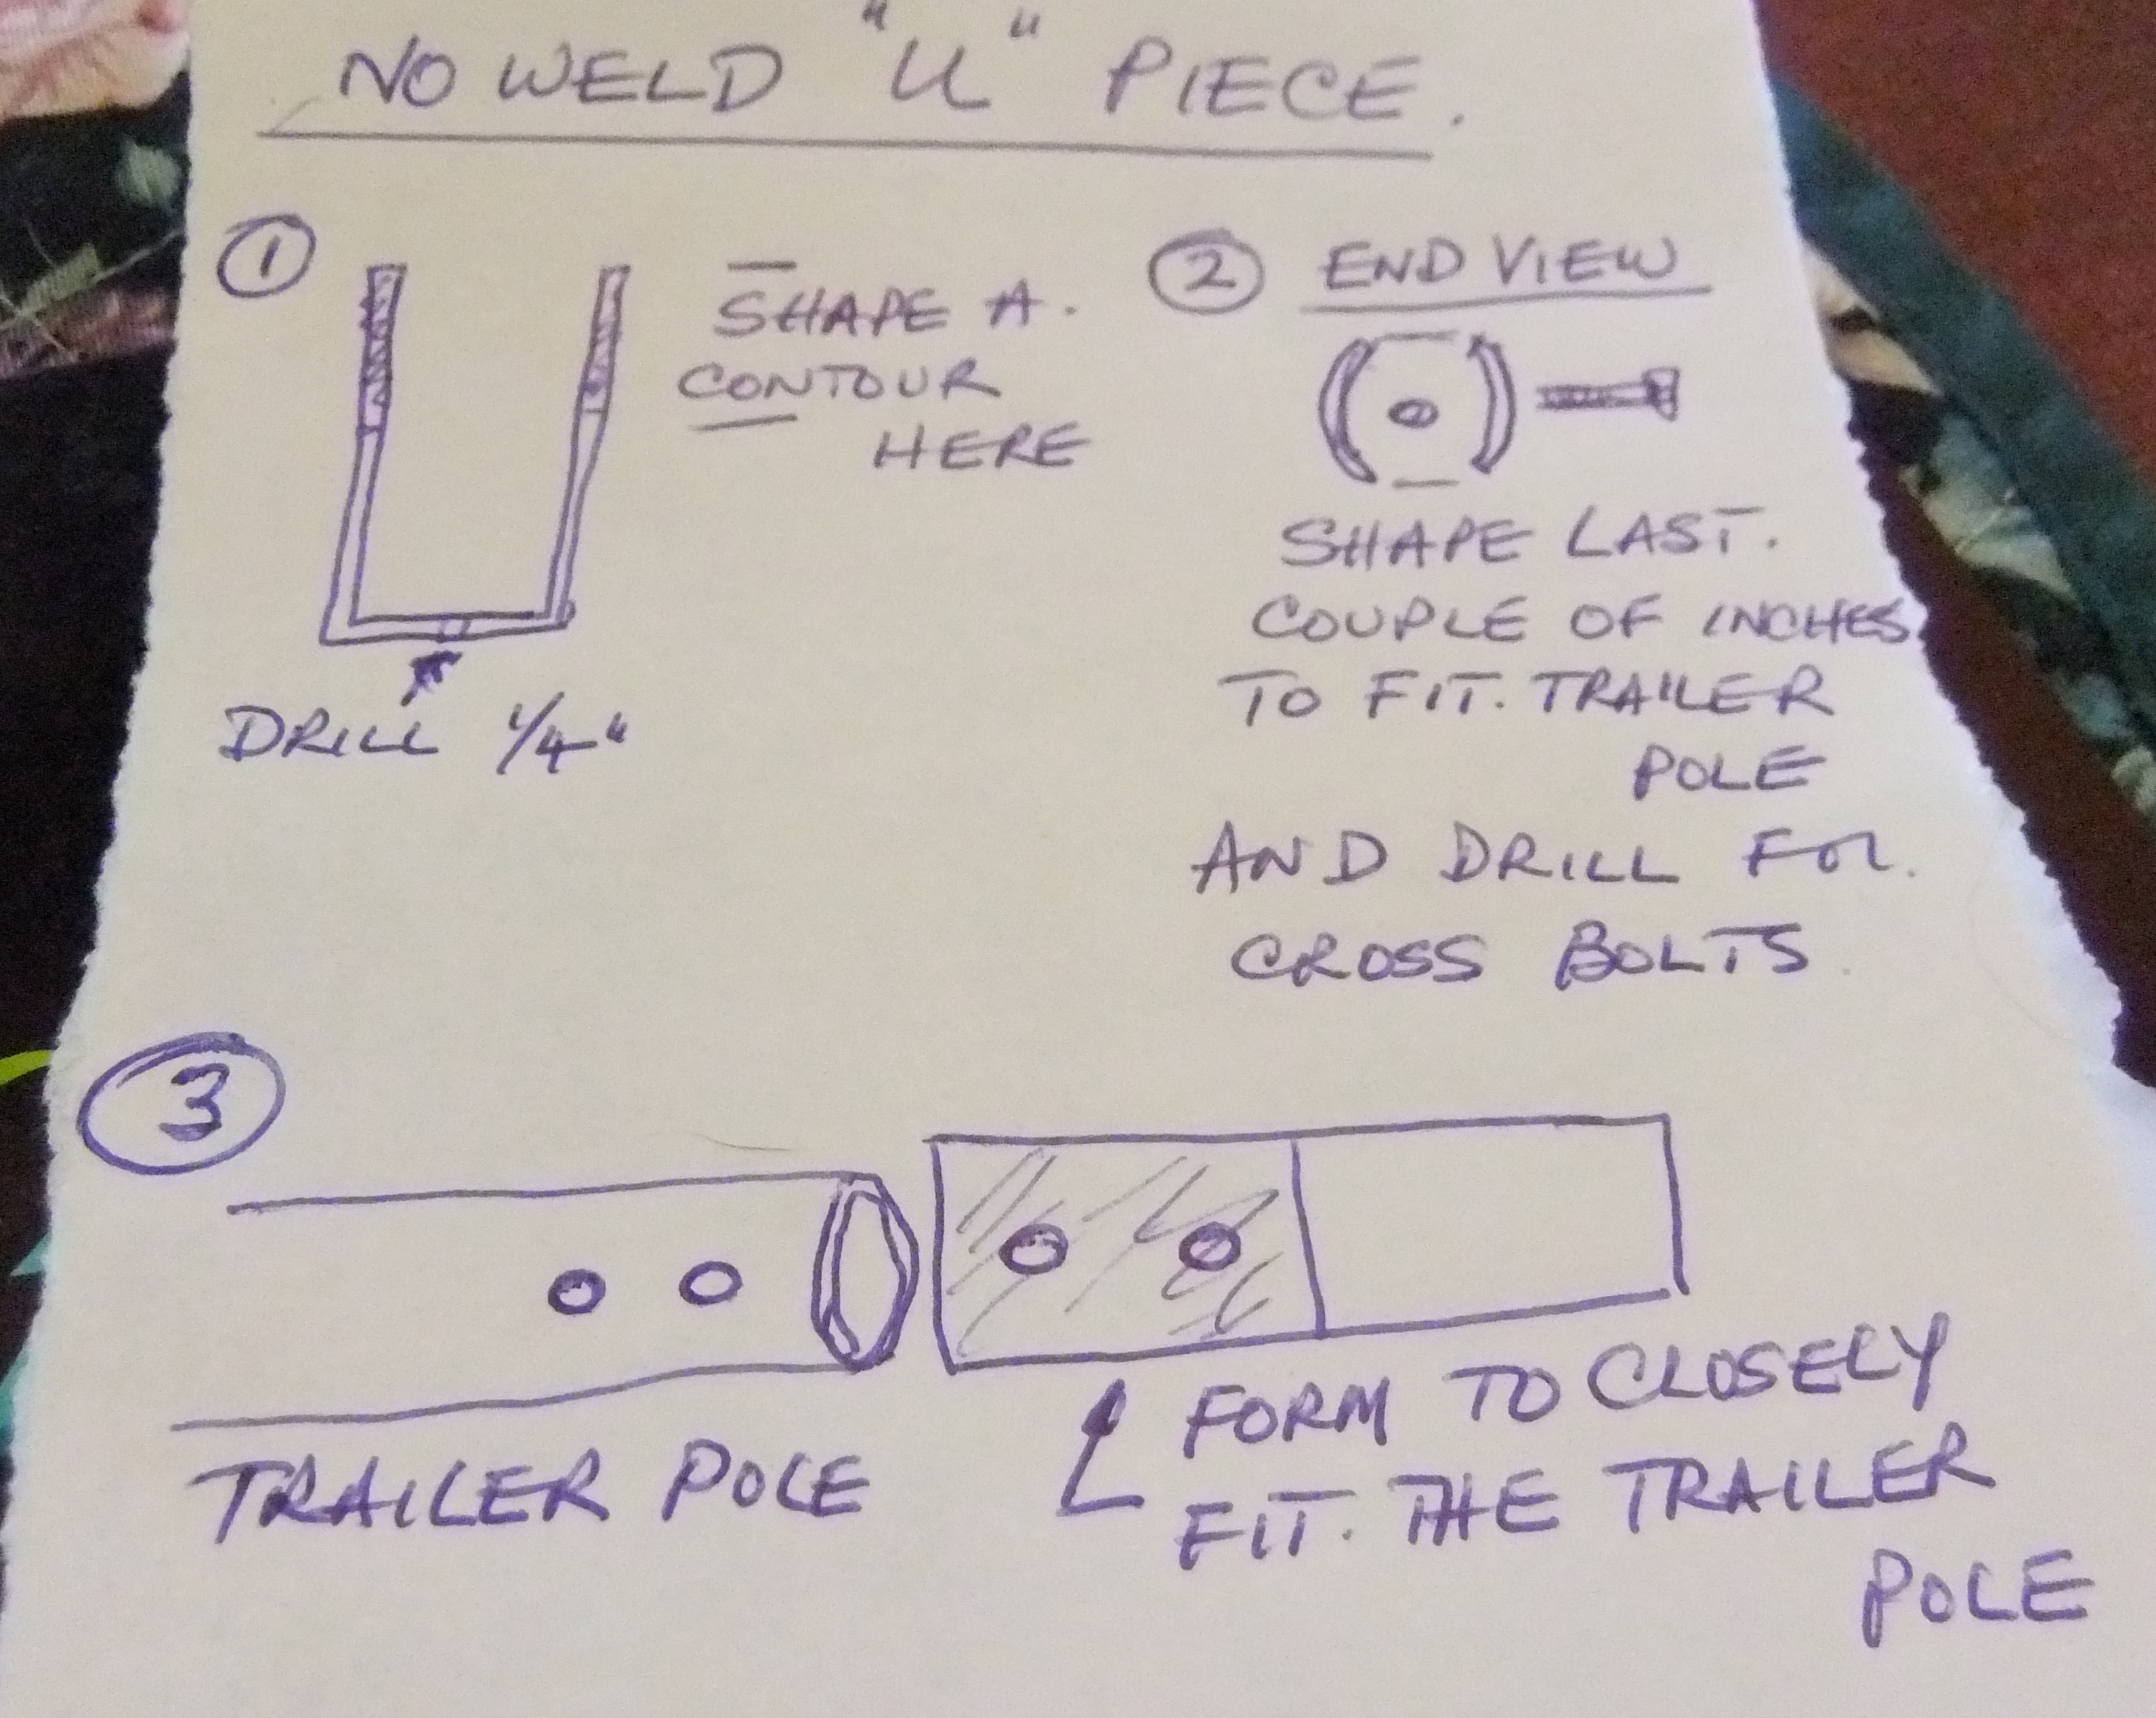 NO WELD "U" PIECE.
1
SHAPE A.
CONTOUR
HERE
DRILL 1/4"
2 END VIEW
SHAPE LAST.
COUPLE OF INCHES
TO FIT. TRAILER
POLE
AND DRILL FOR.
CROSS BOLTS.
3
TRAILER POLE
FORM TO CLOSELY
FIT. THE TRAILER
POLE